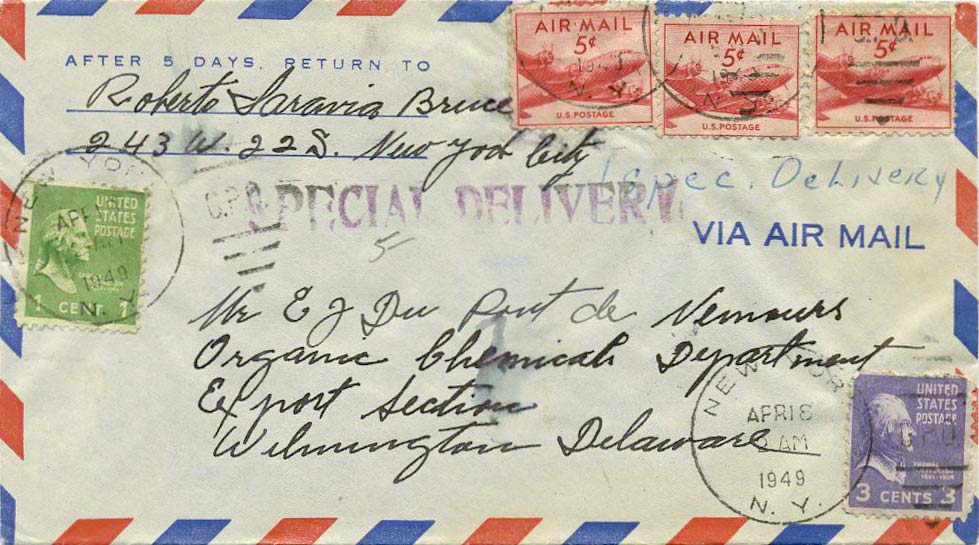 AIR MAIL
5¢
U.S. POSTAGE
AIR MAIL
5¢
U.S. POSTAGE
AIR MAIL
5¢
U.S. POSTAGE
AFTER 5 DAYS, RETURN TO
Roberto Saravia Bruce
243 W. 22 S. New York City
Spec. Delivery
SPECIAL DELIVERY
VIA AIR MAIL
5
NEW YORK
APR
1949
N. Y.
G.P.O.
UNITED
STATES
POSTAGE
1 CENT 1
Mr E J Du Pont de Nemours
Organic Chemicals Department
Export Section
Wilmington Delaware
NEW YORK
APR 18
AM
1949
N. Y.
G.P.O.
UNITED
STATES
POSTAGE
THOMAS
3 CENTS 3